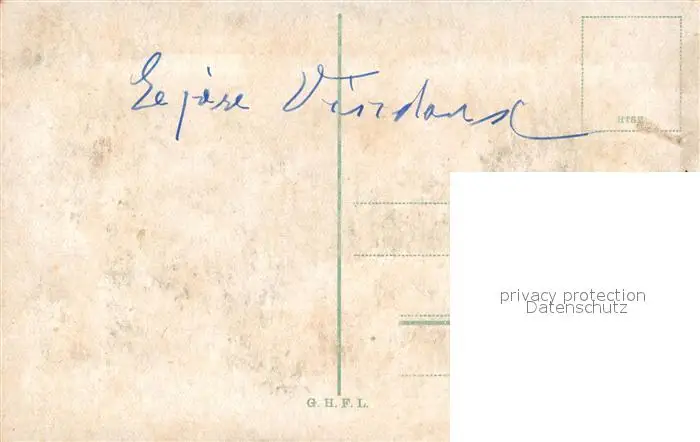 Le père
HTSM
privacy protection
Datenschutz
G. H. F. L.